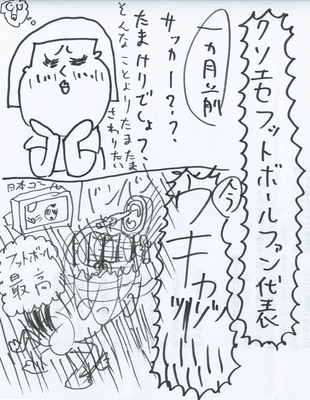 クソエセフットボールファン代表
一カ月前
サッカー？？
たまけりでしょ？
そんなことよりたまたま
さわりたい
今
ウキャッ
日本ゴール
フットボール
最高